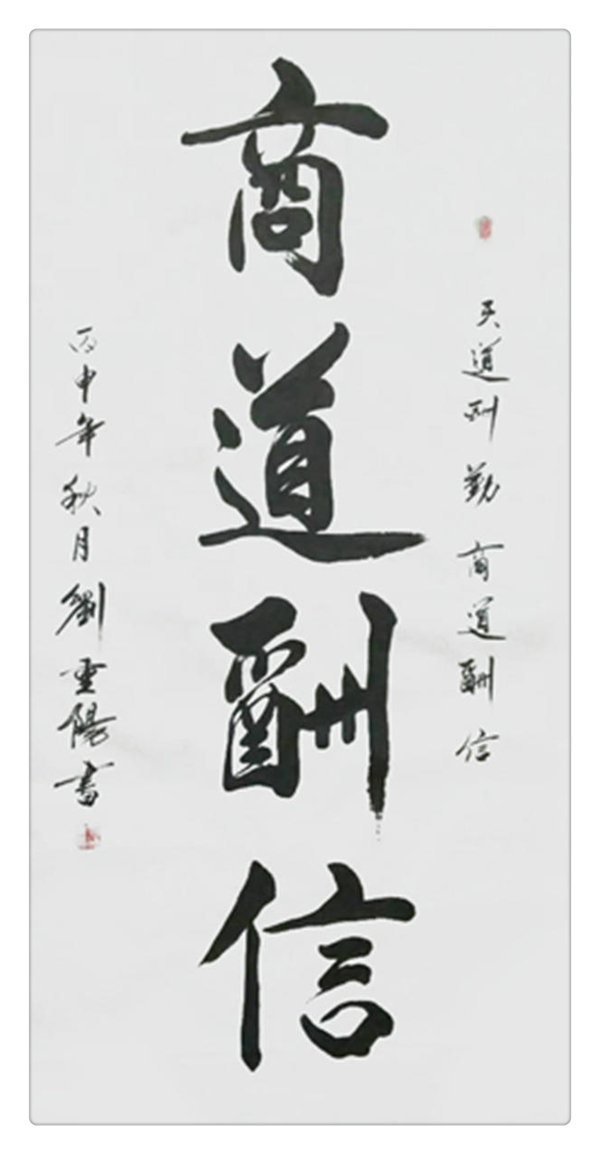 天道酬勤 商道酬信
商道酬信
丙申年秋月劉重陽書